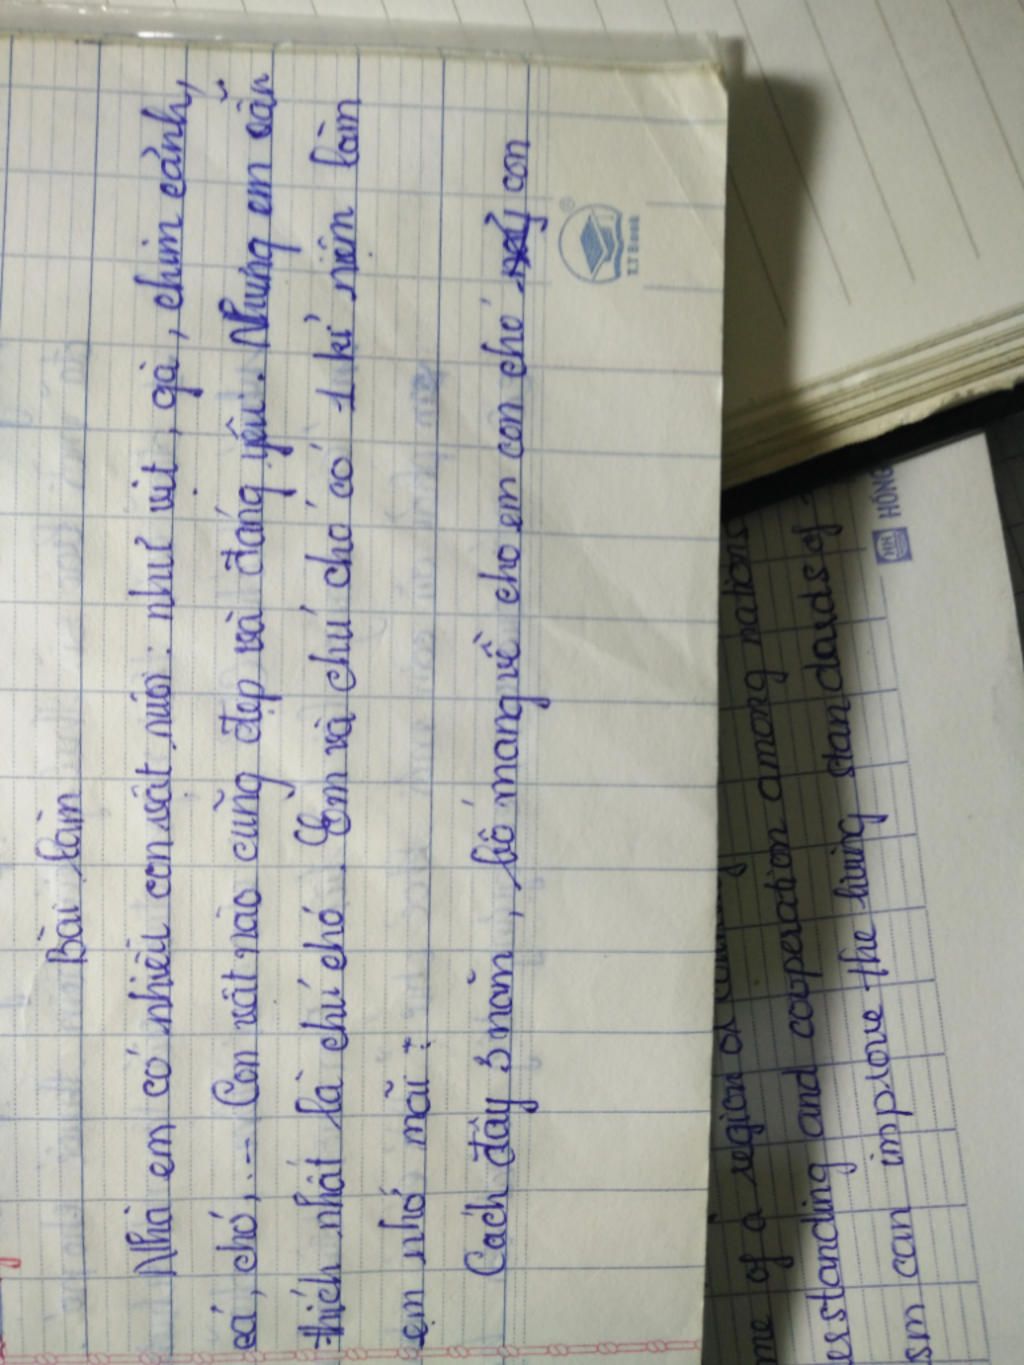 Bài làm
Nhà em có nhiều con vật nuôi: như vịt, gà, chim cảnh,
cá, chó,... Con vật nào cũng đẹp và đáng yêu. Nhưng em vẫn
thích nhất là chú chó. Em và chú chó có 1 kỉ niệm làm
em nhớ mãi:
Cách đây 3 năm, bố mang về cho em con chó con
LT Book
me of a region or among nations
erstanding and cooperation among nations
sm can improve the living standards of
HỒNG